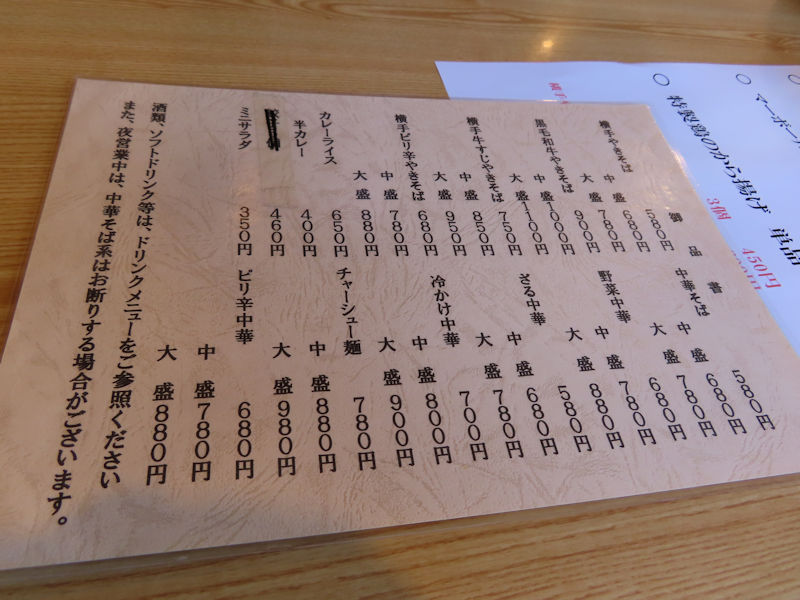 御品書
横手やきそば 580円
中盛 680円
大盛 780円
黒毛和牛やきそば 900円
中盛 1000円
大盛 1100円
横手牛すじやきそば 750円
中盛 850円
大盛 950円
横手ピリ辛やきそば 680円
中盛 780円
大盛 880円
カレーライス 650円
半カレー 400円
460円
ミニサラダ 350円
中華そば 580円
中盛 680円
大盛 780円
野菜中華 680円
中盛 780円
大盛 880円
ざる中華 580円
中盛 680円
大盛 780円
冷かけ中華 700円
中盛 800円
大盛 900円
チャーシュー麺 780円
中盛 880円
大盛 980円
ピリ辛中華 680円
中盛 780円
大盛 880円
酒類、ソフトドリンク等は、ドリンクメニューをご参照ください
また、夜営業中は、中華そば系はお断りする場合がございます。
○ マーボー
○ 特製鶏のから揚げ 単品
3個 450円